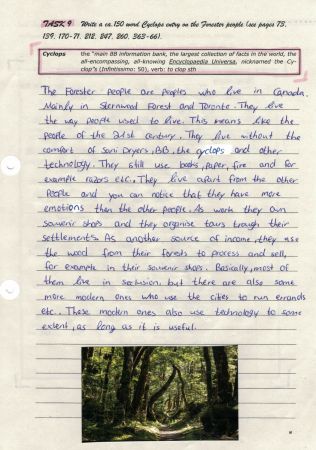 TASK 9 Write a ca. 150 word Cyclops entry on the Forester people (see pages 75,
139, 170-71, 212, 247, 260, 363-66).
Cyclops the "main BB information bank, the largest collection of facts in the world, the
all-encompassing, all-knowing Encyclopaedia Universa, nicknamed the Cy-
clop"s (Infinitissimo: 50), verb: to clop sth
The Forester People are peoples who live in Canada.
Mainly in Sternwood Forest and Toronto. They live
the way people used to live. This means like the
people of the 21st century. They live without the
comfort of Sani Dryers, BB, the cyclops and other
technology. They still use books, paper, fire and for
example razors etc.. They live apart from the other
People and you can notice that they have more
emotions then the other people. As work they own
souvenir shops and they organise tours trough their
settlements. As another source of income, they use
the wood from their forests to process and sell,
for example in their souvenir shops. Basically, most of
them live in seclusion, but there are also some
more modern ones who use the cities to run errands
etc.. These modern ones also use technology to some
extent, as long as it is useful.